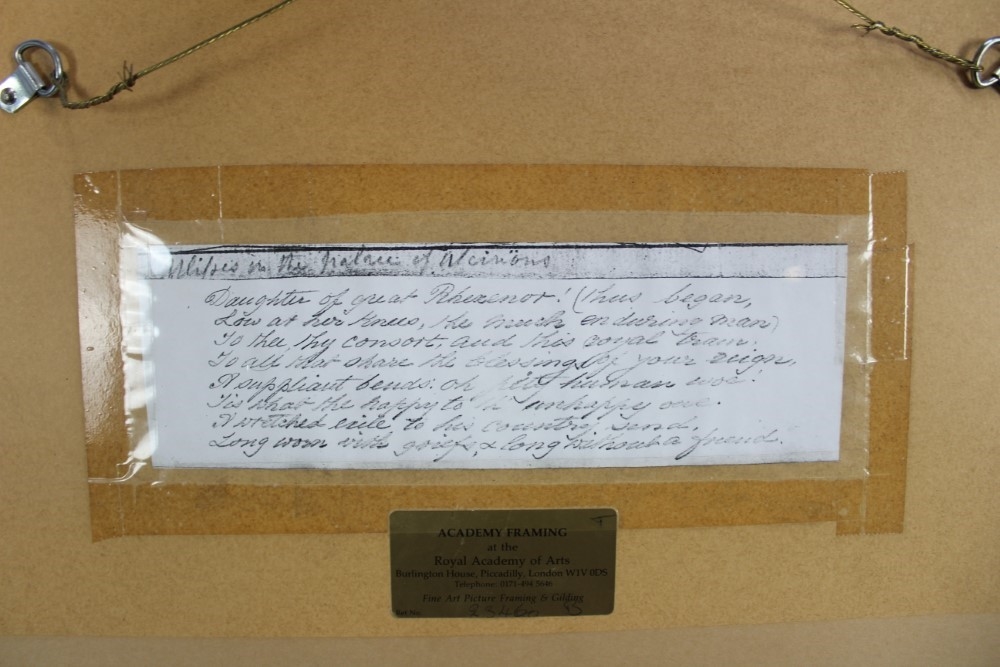 Ulisses in the Palace of Alcinöns
Daughter of great Rhexenor! (thus began,
Low at her knees, the much enduring man)
To thee, thy consort, and this royal train,
To all that share the blessings of your reign,
A suppliant bends: oh pity human woe!
Tis what the happy to th' unhappy owe.
A wretched exile to his country send,
Long worn with griefs, & long without a friend.
ACADEMY FRAMING
at the
Royal Academy of Arts
Burlington House, Piccadilly, London W1V 0DS
Telephone: 0171-494 5646
Fine Art Picture Framing & Gilding
Ref No.